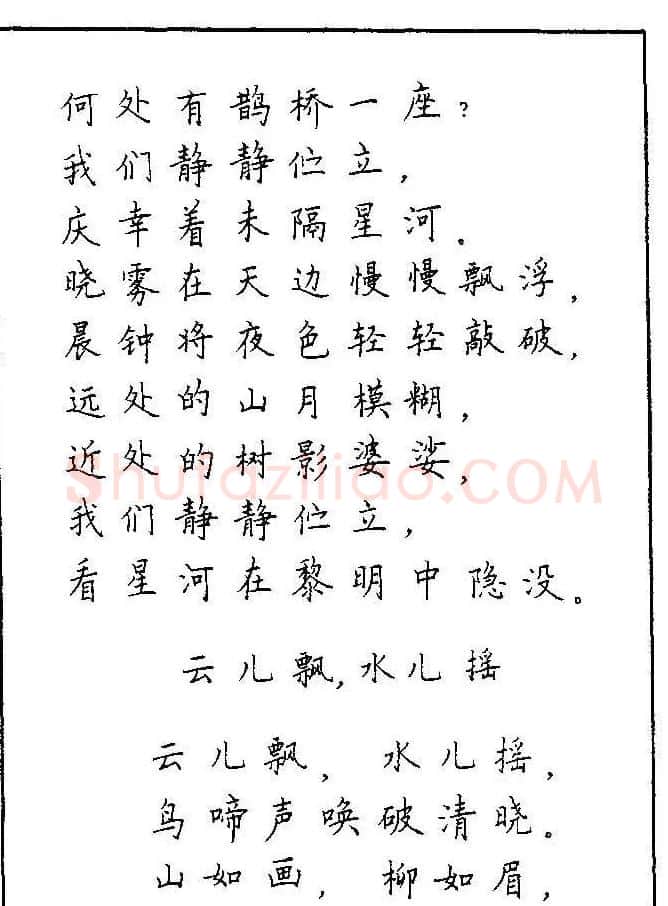 何处有鹊桥一座?
我们静静伫立,
庆幸着未隔星河。
晓雾在天边慢慢飘浮,
晨钟将夜色轻轻敲破,
远处的山月模糊,
近处的树影婆娑,
shufaziliao.COM
我们静静伫立,
看星河在黎明中隐没。
云儿飘,水儿摇
云儿飘, 水儿摇,
鸟啼声唤破清晓。
山如画, 柳如眉,